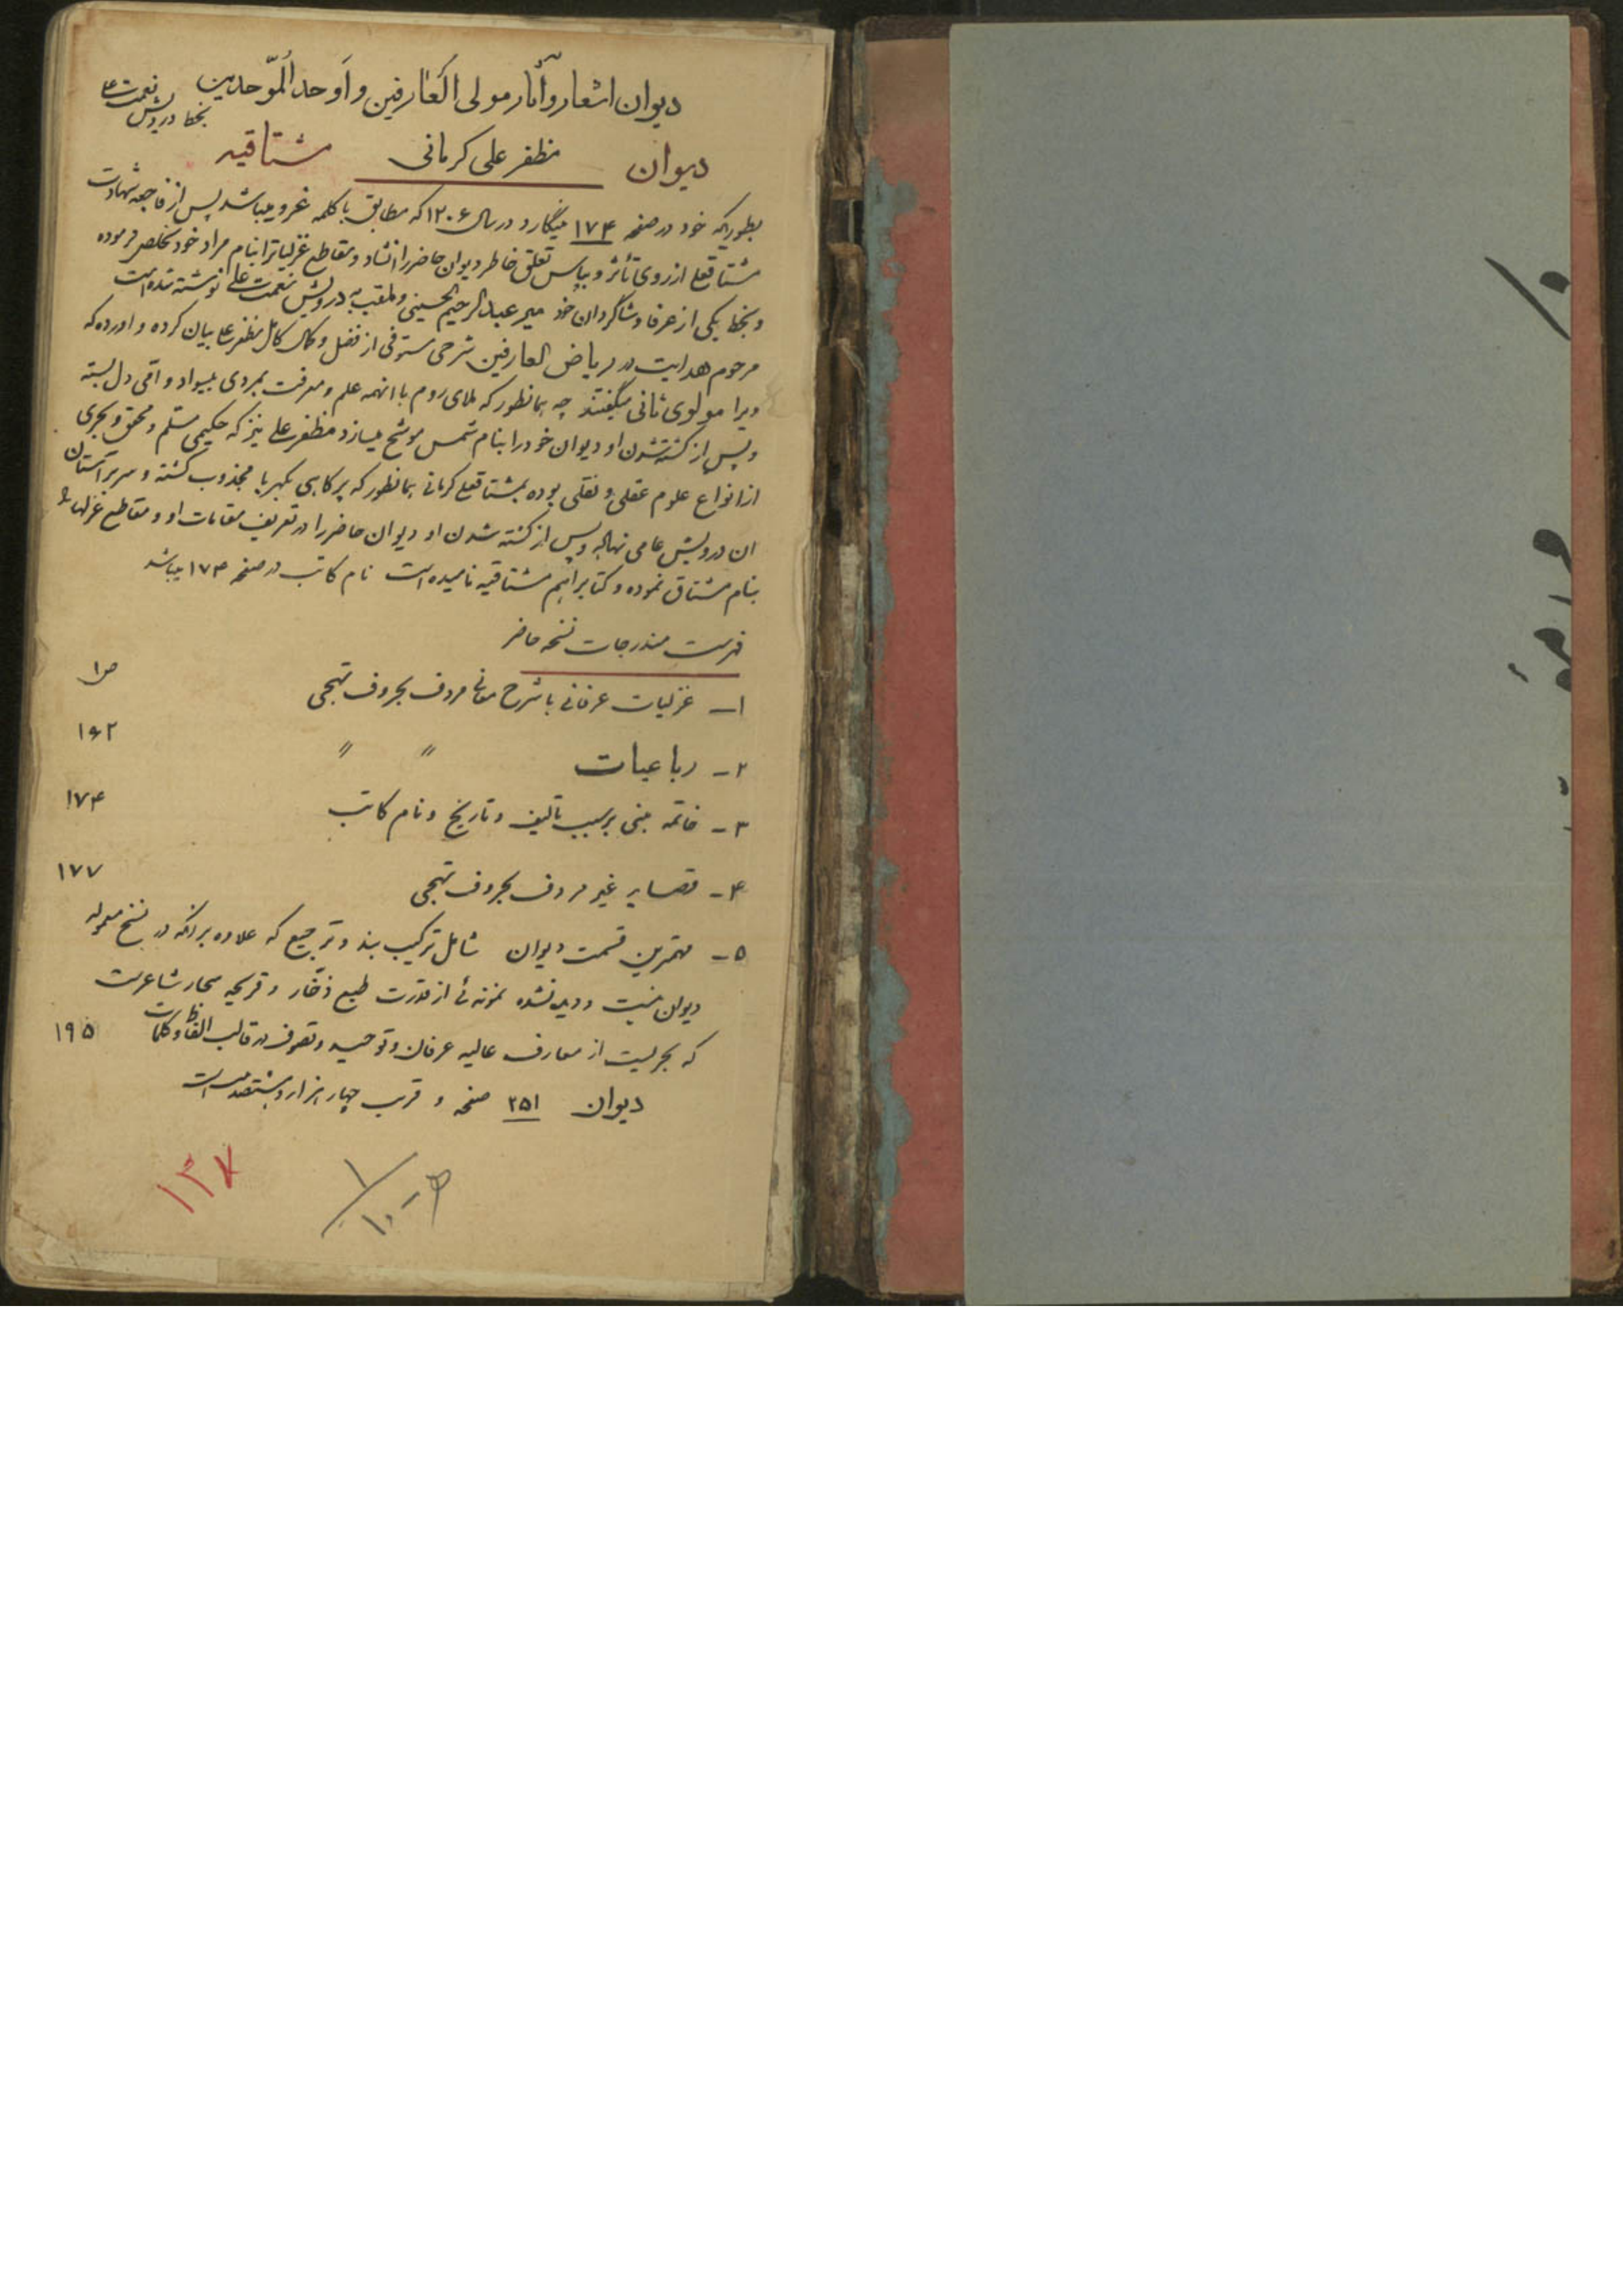 دیوان اشعار و آثار مولی العارفین و اوحد الموحدین
بخط درویش نعمت علی
دیوان مظفر علی کرمانی مشتاقیه
بطوریکه خود در صفحه ۱۷۴ مینگارد در سال ۱۲۰۶ که مطابق با کلمه غرو میباشد پس از فاجعه شهادت
مشتاقعلی از روی تأثر و بپاس تعلق خاطر دیوان حاضر را انشاد و مقاطع غزلیاتش را بنام مراد خود تخلص فرموده
و بخط یکی از عرفا و شاگردان خود میر عبدالرحیم الحسینی و ملقب به درویش نعمت علی نوشته شده است
مرحوم هدایت در ریاض العارفین شرحی مستوفی از فضل و کمال کامل مظفر علی بیان کرده و آورده که
ویرا مولوی ثانی میگفتند چه همانطور که ملای روم با آنهمه علم و معرفت بمردی بیسواد و امی دل بسته
و پس از کشته شدن او دیوان خود را بنام شمس موشح میسازد مظفر علی نیز که حکیمی مسلم و محقق و بحری
از انواع علوم عقلی و نقلی بوده بمشتاقعلی کرمانی همانطور که پر کاهی بکهربا مجذوب گشته و سر بر آستان
آن درویش عامی نهاده و پس از کشته شدن او دیوان حاضر را در تعریف مقامات او و مقاطع غزلها
بنام مشتاق نموده و کتابرا هم مشتاقیه نامیده است نام کاتب در صفحه ۱۷۴ میباشد
فهرست مندرجات نسخه حاضر
۱ــ غزلیات عرفانی با شرح معانی مردف بحروف تهجی ص۱
۲ــ رباعیات " " ۱۶۲
۳ــ خاتمه مبنی بر سبب تألیف و تاریخ و نام کاتب ۱۷۴
۴ــ قصاید غیر مردف بحروف تهجی ۱۷۷
۵ــ مهمترین قسمت دیوان شامل ترکیب بند و ترجیع که علاوه بر آنکه در نسخ معموله
دیوان نیست و دیده نشده نمونه ئی از قدرت طبع ذخّار و قریحه سحار شاعر است
که بحریست از معارف عالیه عرفان و توحید و تصوف در قالب الفاظ و کلمات ۱۹۵
دیوان ۲۵۱ صفحه و قریب چهار هزار و هشتصد بیت است
۱۳۷